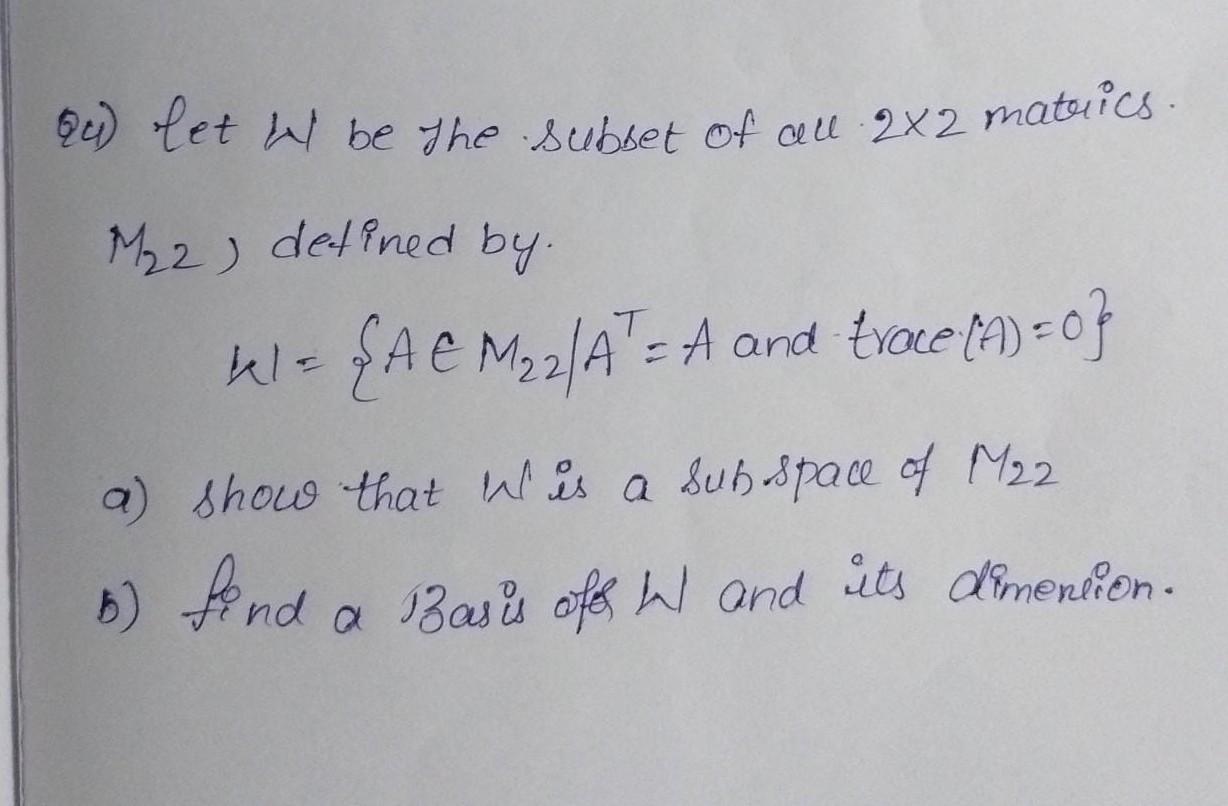 Q4) let W be the subset of all 2x2 matrics.
M22, defined by.
W = {A ∈ M22 / A^T = A and trace(A) = 0}
a) show that W is a subspace of M22
b) find a Basis of W and its dimension.